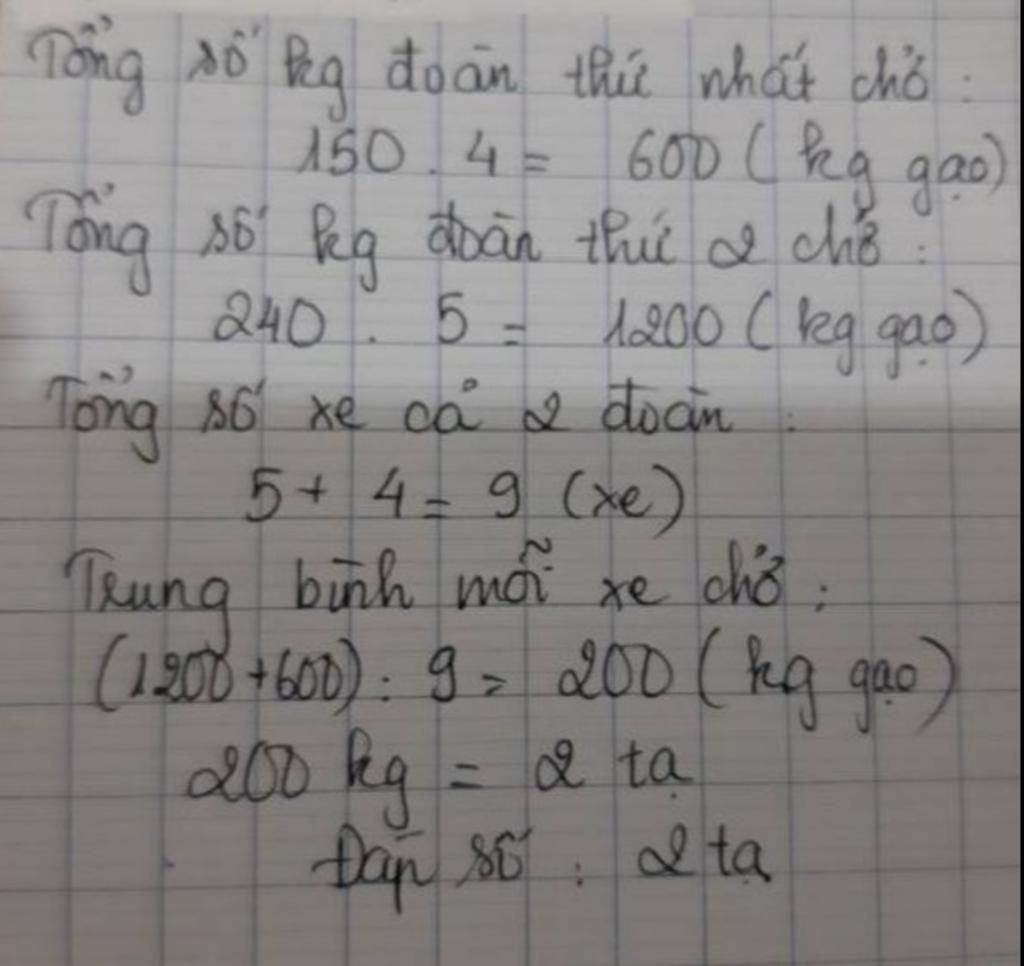 Tổng số kg đoàn thứ nhất chở :
150 . 4 = 600 ( kg gạo)
Tổng số kg đoàn thứ 2 chở :
240 . 5 = 1200 ( kg gạo)
Tổng số xe cả 2 đoàn :
5 + 4 = 9 (xe)
Trung bình mỗi xe chở :
(1200 + 600) : 9 = 200 ( kg gạo)
200 kg = 2 tạ
Đáp số : 2 tạ